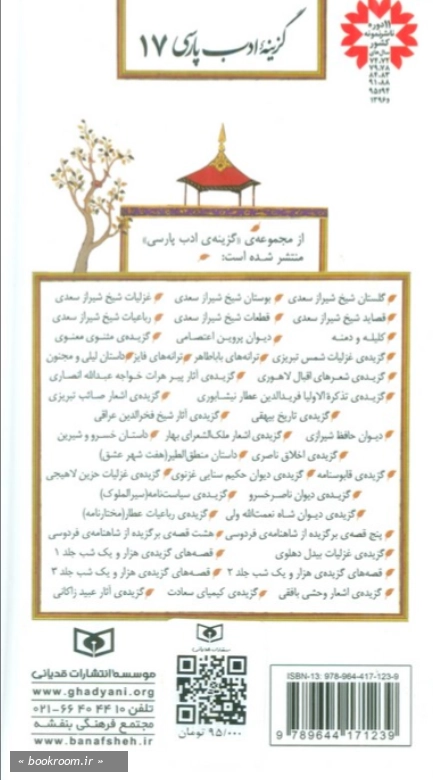 گزینهٔ ادب پارسی ۱۷
۱۱ دوره
ناشر نمونه
کشور
سال‌های
۷۲،۷۴
۷۹،۷۸
۸۴،۸۳
۹۱،۸۸
۹۵،۹۴
و ۱۳۹۶
از مجموعه‌ی «گزینه‌ی ادب پارسی»
منتشر شده است:
گلستان شیخ شیراز سعدی بوستان شیخ شیراز سعدی غزلیات شیخ شیراز سعدی
قصاید شیخ شیراز سعدی قطعات شیخ شیراز سعدی رباعیات شیخ شیراز سعدی
کلیله و دمنه دیوان پروین اعتصامی گزیده‌ی مثنوی معنوی
گزیده‌ی غزلیات شمس تبریزی ترانه‌های باباطاهر ترانه‌های فایز داستان لیلی و مجنون
گزیده‌ی شعرهای اقبال لاهوری گزیده‌ی آثار پیر هرات خواجه عبدالله انصاری
گزیده‌ی تذکرة الاولیا فریدالدین عطار نیشابوری گزیده‌ی اشعار صائب تبریزی
گزیده‌ی تاریخ بیهقی گزیده‌ی آثار شیخ فخرالدین عراقی
دیوان حافظ شیرازی گزیده‌ی اشعار ملک‌الشعرای بهار داستان خسرو و شیرین
گزیده‌ی اخلاق ناصری داستان منطق‌الطیر(هفت شهر عشق)
گزیده‌ی قابوسنامه گزیده‌ی دیوان حکیم سنایی غزنوی گزیده‌ی غزلیات حزین لاهیجی
گزیده‌ی دیوان ناصرخسرو گزیده‌ی سیاست‌نامه(سیرالملوک)
گزیده‌ی دیوان شاه نعمت‌الله ولی گزیده‌ی رباعیات عطار(مختارنامه)
پنج قصه‌ی برگزیده از شاهنامه‌ی فردوسی هشت قصه‌ی برگزیده از شاهنامه‌ی فردوسی
گزیده‌ی غزلیات بیدل دهلوی قصه‌های گزیده‌ی هزار و یک شب جلد ۱
قصه‌های گزیده‌ی هزار و یک شب جلد ۲ قصه‌های گزیده‌ی هزار و یک شب جلد ۳
گزیده‌ی اشعار وحشی بافقی گزیده‌ی کیمیای سعادت گزیده‌ی آثار عبید زاکانی
ISBN-13: 978-964-417-123-9
9 789644 171239
۹۵/۰۰۰ تومان
موسسه انتشارات قدیانی
www.ghadyani.org
تلفن ۱۰ ۴۴ ۴۰ ۶۶-۰۲۱
مجتمع فرهنگی بنفشه
www.banafsheh.ir
« bookroom.ir »